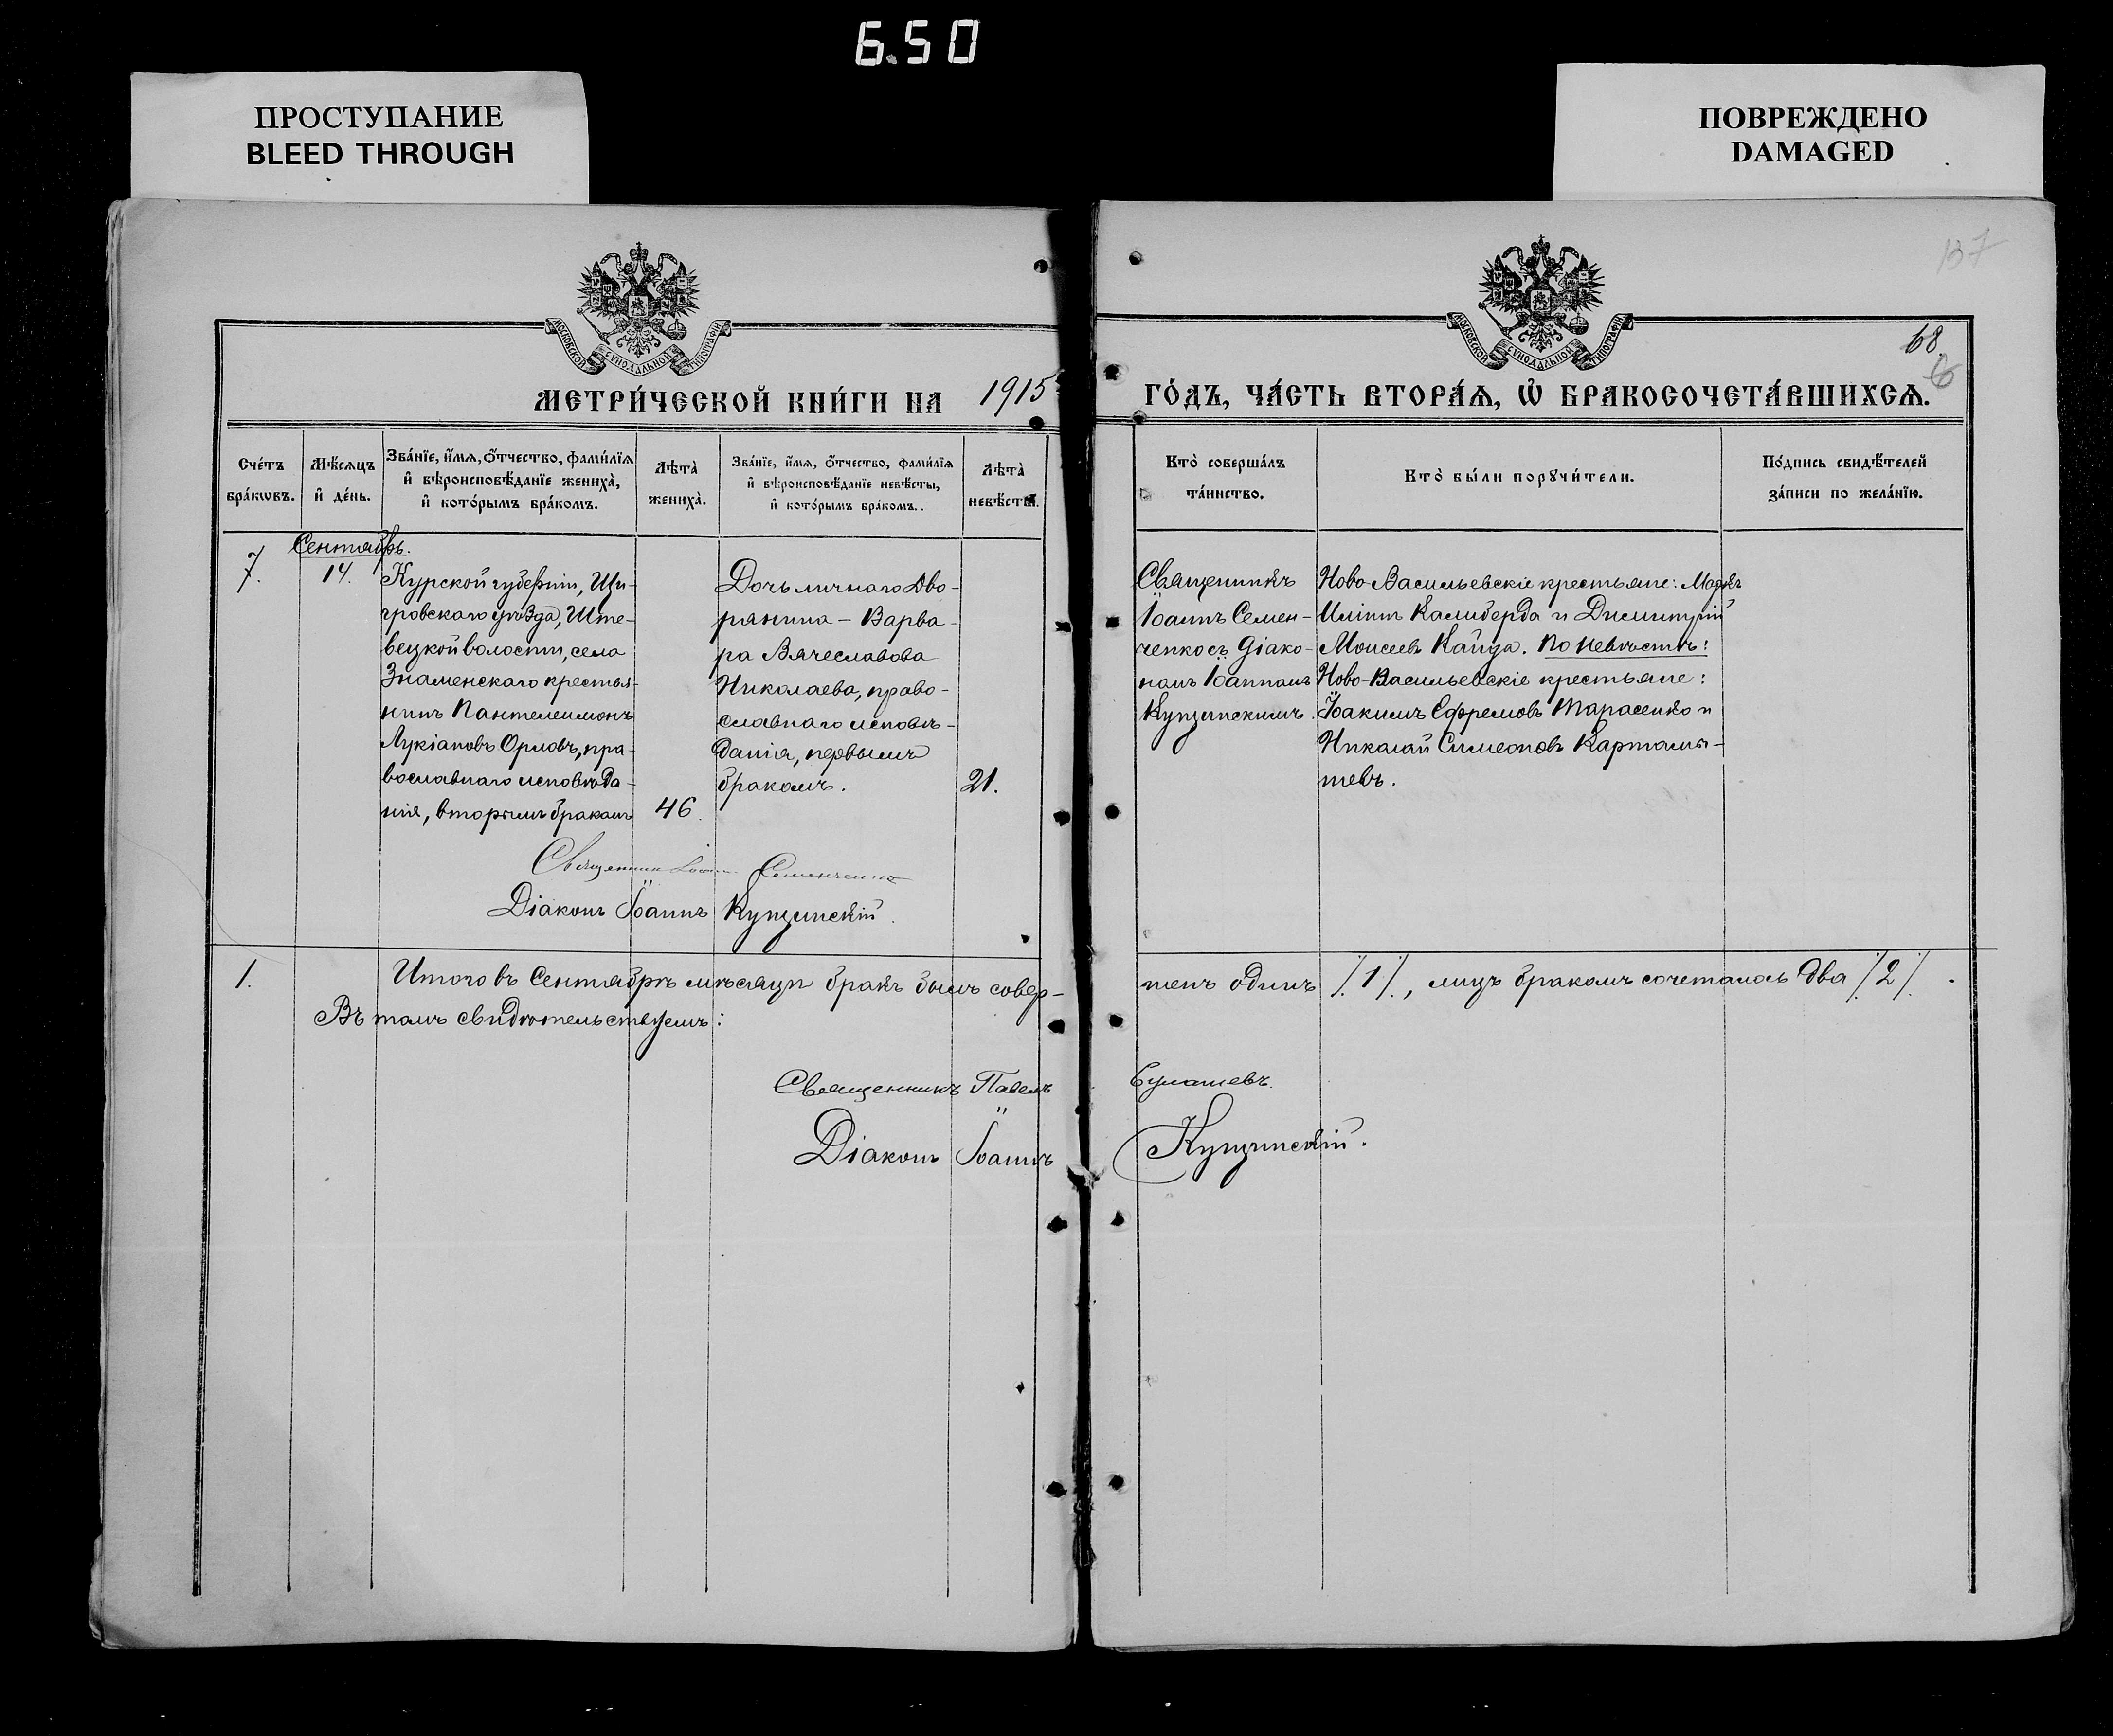 6.50
ПРОСТУПАНИЕ
BLEED THROUGH
ПОВРЕЖДЕНО
DAMAGED
137
МОСКОВСКОЙ СѴНОДАЛЬНОЙ ТИПОГРАФІИ
МОСКОВСКОЙ СѴНОДАЛЬНОЙ ТИПОГРАФІИ
68.
МЕТРИ́ЧЕСКОЙ КНИ́ГИ НА 1915
ГО́ДЪ, ЧА́СТЬ ВТОРА́Ѧ, Ѽ БРАКОСОЧЕТА́ВШИХСѦ.
Сче́тъ
бра́кѡвъ.
Мѣ́сѧцъ
и҆ де́нь.
Зва́нїе, и҆́мѧ, ѻ҆́тчество, фами́лїѧ
и҆ вѣроисповѣ́данїе жениха̀,
и҆ кото́рымъ бра́комъ.
Лѣта̀
жениха̀.
Зва́нїе, и҆́мѧ, ѻ҆́тчество, фами́лїѧ
и҆ вѣроисповѣ́данїе невѣ́сты,
и҆ кото́рымъ бра́комъ.
Лѣта̀
невѣ́сты.
Кто̀ соверша́лъ
та́инство.
Кто̀ бы́ли порꙋчи́тели.
По́дпись свидѣ́телей
за́писи по жела́нїю.
Сентябрь.
7.
14.
Курской губерніи, Щи-
гровскаго уѣзда, Ште-
вецкой волости, села
Знаменскаго крестья-
нинъ Пантелеимонъ
Лукіановъ Орловъ, пра-
вославнаго исповѣда-
нія, вторымъ бракомъ
46.
Дочь личнаго дво-
рянина – Варва-
ра Вячеславова
Николаева, право-
славнаго исповѣ-
данія, первымъ
бракомъ.
21.
Священникъ
Іоаннъ Семен-
ченко съ діако-
номъ Іоанномъ
Кущинскимъ.
Ново-Васильевскіе крестьяне:
Иліинъ Калиберда и Димитрій
Моисеевъ Кайда. По невѣстѣ:
Ново-Васильевскіе крестьяне:
Іоакимъ Ефремовъ Тарасенко и
Николай Симеоновъ Картамы-
шевъ.
Священникъ Іоаннъ Семенченко
Діаконъ Іоаннъ Кущинскій.
1.
Итого въ Сентябрѣ мѣсяцѣ бракъ былъ совер-
шенъ одинъ /1/, лицъ бракомъ сочеталось два /2/.
Въ томъ свидѣтельствуемъ:
Священникъ Павелъ
Діаконъ Іоаннъ Кущинскій.